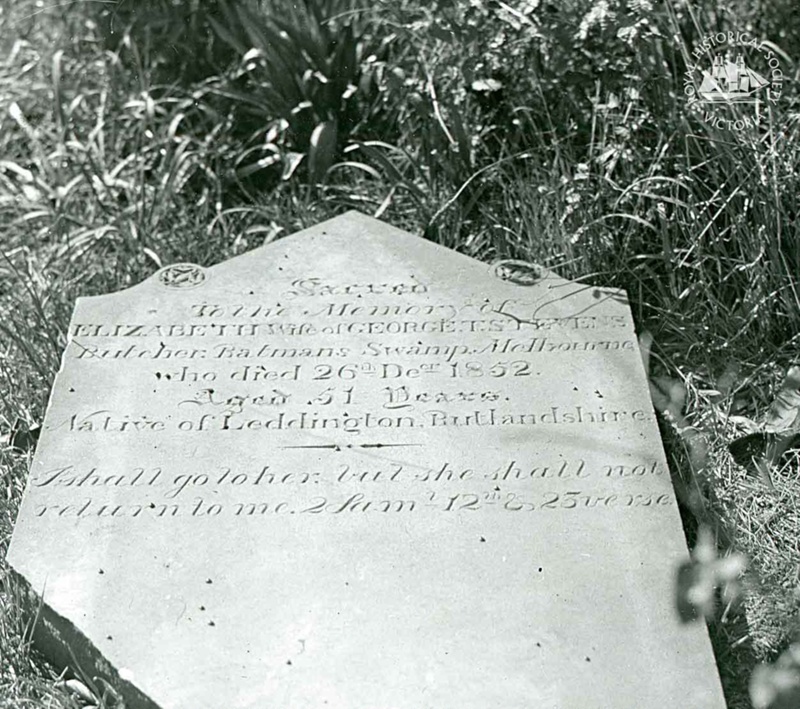 ROYAL HISTORICAL SOCIETY VICTORIA
Sacred
To the Memory of
ELIZABETH Wife of GEORGE T. STEVENS
Butcher. Batmans Swamp. Melbourne
who died 26th Decr 1852.
Aged 51 Years.
Native of Leddington, Rutlandshire.
I shall go to her. but she shall not
return to me. 2 Saml 12th & 23 verse